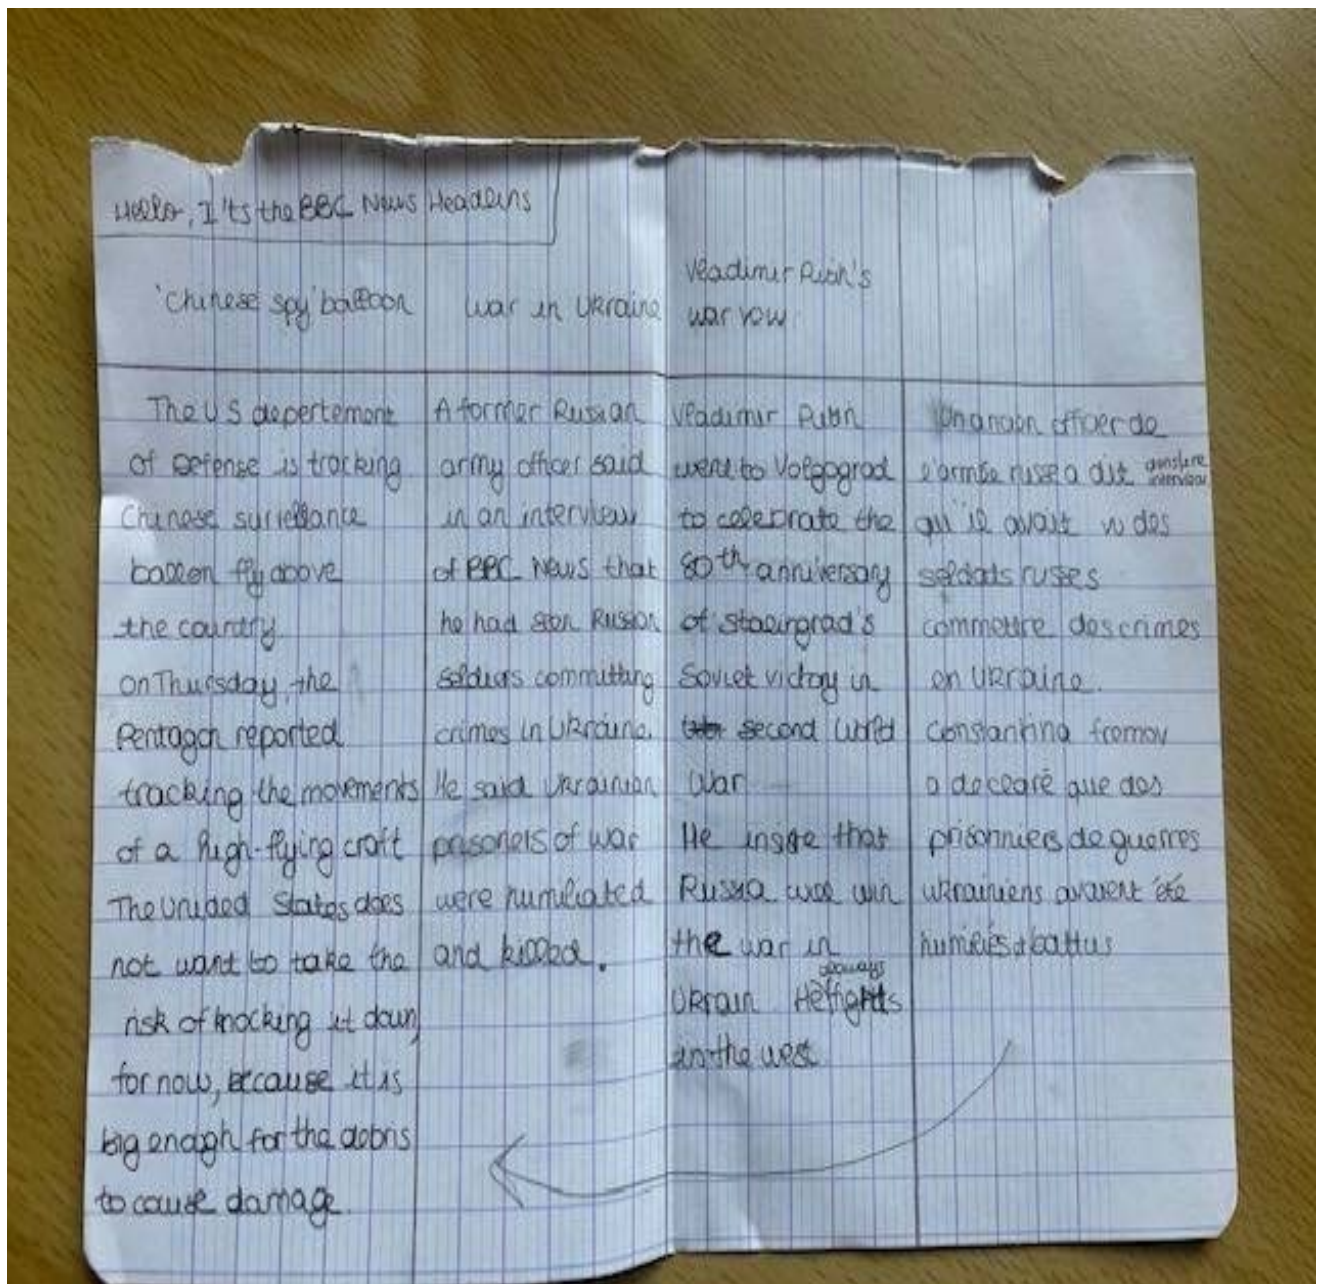 Hello, I'ts the BBC News Headlins
'Chinese spy' balloon
The US depertement
of Defense is tracking
Chinese surveillance
balloon fly above
the country.
on Thursday, the
Pentagon reported
tracking the movements
of a high-flying craft
The United States does
not want to take the
risk of knocking it down,
for now, because it is
big enough for the debris
to cause damage.
War in Ukraine
A former Russian
army officer said
in an interview
of BBC News that
he had seen Russian
soldiers committing
crimes in Ukraine.
He said Ukrainian
prisoners of war
were humiliated
and killed.
Vladimir Putin's
war vow
Vladimir Putin
went to Volgograd
to celebrate the
80th anniversary
of Stalingrad's
Soviet victory in
second World
War
He insiste that
Russia will win
the war in
always
Ukrain. He fights
in the west
Un ancien officier de
l'armée russe a dit dans une interview
qu'il avait vu des
soldats russes
commettre des crimes
en Ukraine.
Constantina fromov
a declaré que des
prisonniers de guerres
ukrainiens avaient été
humiliés et battus